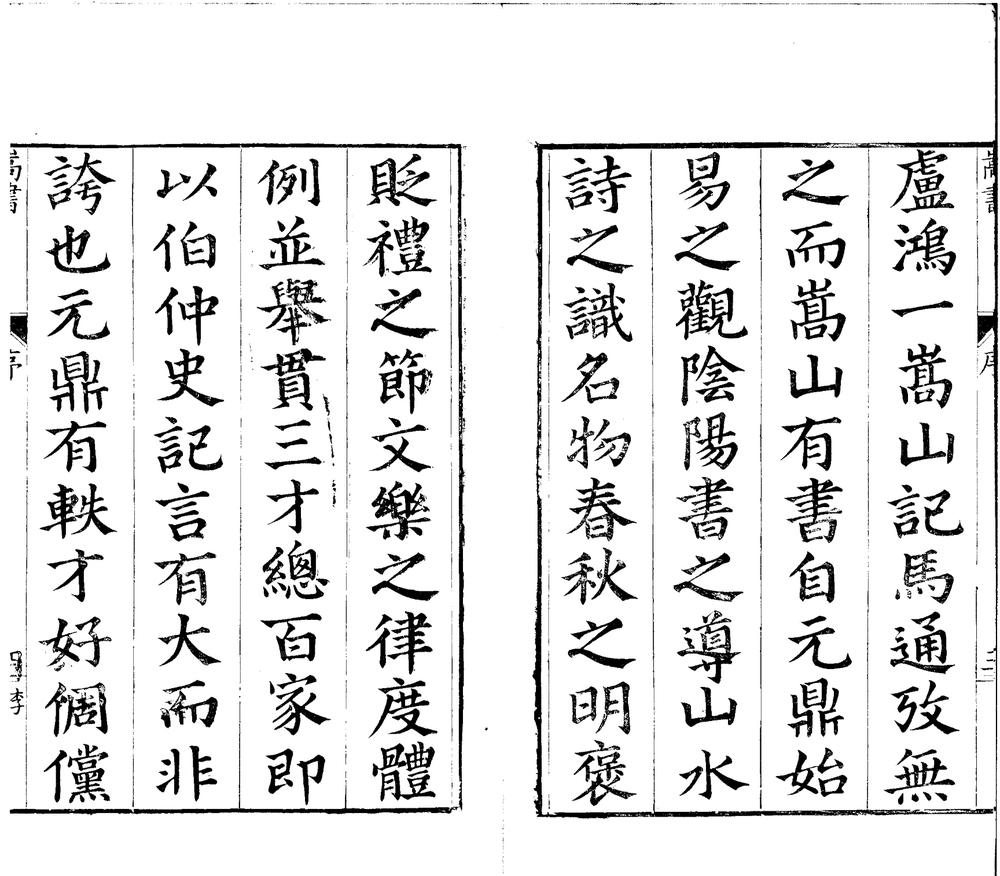 盧鴻一嵩山記馬通攷無
之而嵩山有書自元鼎始
易之觀陰陽書之導山水
詩之識名物春秋之明褒
貶禮之節文樂之律度體
例並舉貫三才總百家即
以伯仲史記言有大而非
誇也元鼎有軼才好倜儻
嵩書
序